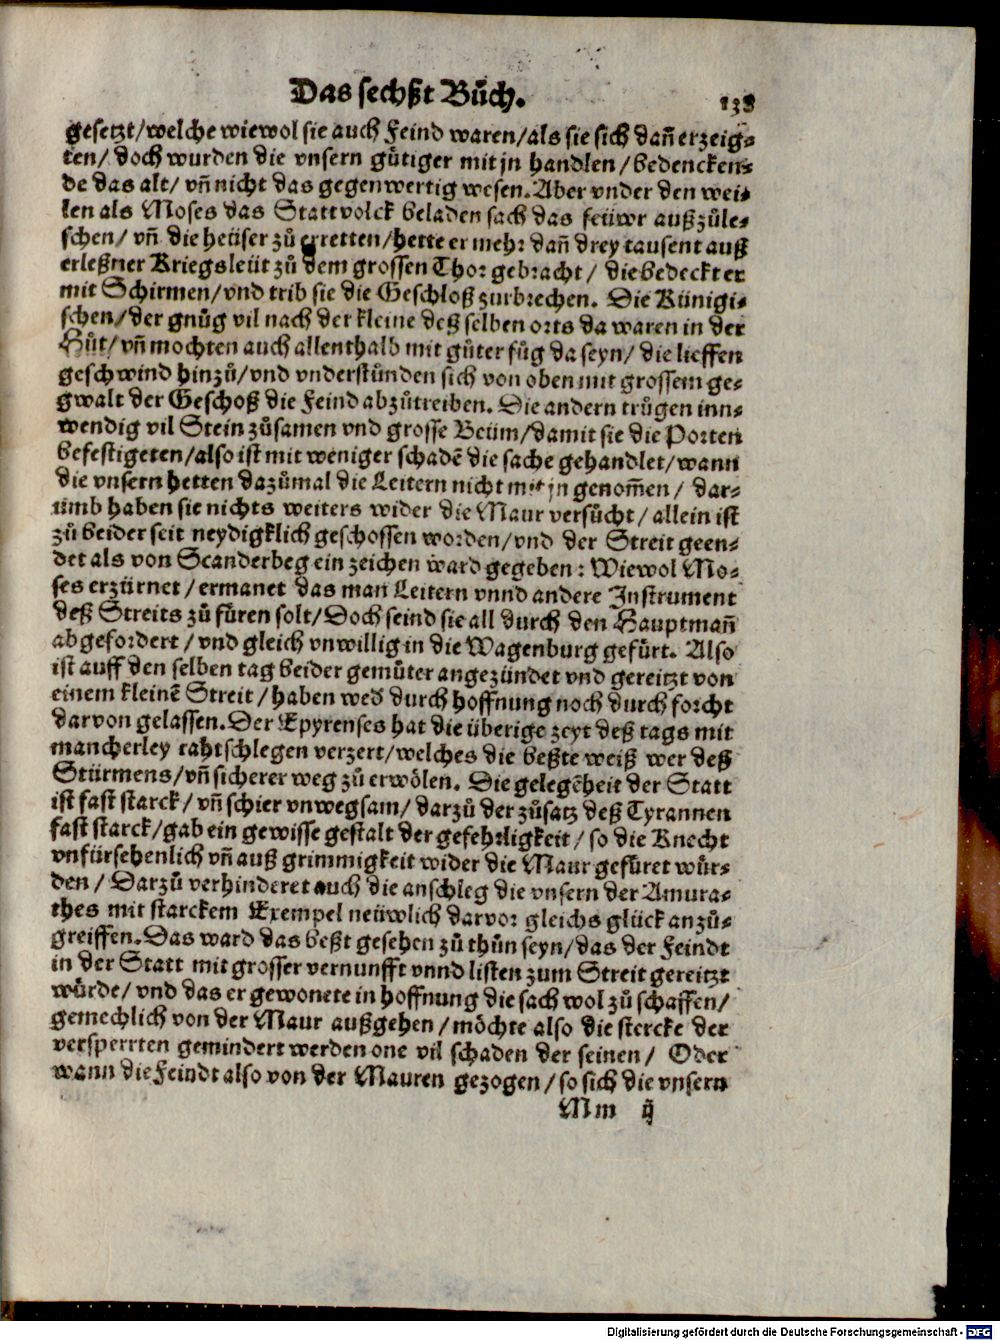 Das sechßt Bůch. 138
gesetzt/welche wiewol sie auch Feind waren/als sie sich dañ erzeig-
ten/ doch wurden die vnsern gůtiger mit jn handlen/ bedencken-
de das alt/ vñ nicht das gegenwertig wesen. Aber vnder den wei-
len als Moses das Stattvolck beladen sach das feüwr außzůle-
schen/ vñ die heüser zů erretten/hette er mehr dañ drey tausent auß
erleßner Kriegsleüt zů dem grossen Thor gebracht/ die bedeckt er
mit Schirmen/vnd trib sie die Geschloß zurbrechen. Die Künigi-
schen/der gnůg vil nach der kleine deß selben orts da waren in der
Hůt/vñ mochten auch allenthalb mit gůter fůg da seyn/ die lieffen
geschwind hinzů/vnd vnderstůnden sich von oben mit grossem ge-
gwalt der Geschoß die Feind abzůtreiben. Die andern trůgen inn-
wendig vil Stein zůsamen vnd grosse Beüm/damit sie die Porten
befestigeten/also ist mit weniger schadē die sache gehandlet/wann
die vnsern hetten dazůmal die Leitern nicht mit jn genom̃en/ dar-
umb haben sie nichts weiters wider die Maur versůcht/ allein ist
zů beider seit neydigklich geschossen worden/vnd der Streit geen-
det als von Scanderbeg ein zeichen ward gegeben: Wiewol Mo-
ses erzürnet/ermanet das man Leitern vnnd andere Instrument
deß Streits zů füren solt/Doch seind sie all durch den Hauptmañ
abgefordert/vnd gleich vnwillig in die Wagenburg gefürt. Also
ist auff den selben tag beider gemůter angezündet vnd gereitzt von
einem kleinē Streit/haben wed̕ durch hoffnung noch durch forcht
darvon gelassen. Der Epyrenses hat die überige zeyt deß tags mit
mancherley rahtschlegen verzert/welches die beßte weiß wer deß
Stürmens/vñ sicherer weg zů erwölen. Die gelegēheit der Statt
ist fast starck/vñ schier vnwegsam/ darzů der zůsatz deß Tyrannen
fast starck/gab ein gewisse gestalt der gefehrligkeit/ so die Knecht
vnfürsehenlich vñ auß grimmigkeit wider die Maur gefüret wür-
den/ Darzů verhinderet auch die anschleg die vnsern der Amura-
thes mit starckem Exempel neüwlich darvor gleichs glück anzů-
greiffen. Das ward das beßt gesehen zů thůn seyn/das der Feindt
in der Statt mit grosser vernunfft vnnd listen zum Streit gereitzt
würde/vnd das er gewonete in hoffnung die sach wol zů schaffen/
gemechlich von der Maur außgehen/möchte also die stercke der
versperrten gemindert werden one vil schaden der seinen/ Oder
wann die Feindt also von der Mauren gezogen/so sich die vnsern
Mm ij
Digitalisierung gefördert durch die Deutsche Forschungsgemeinschaft - DFG